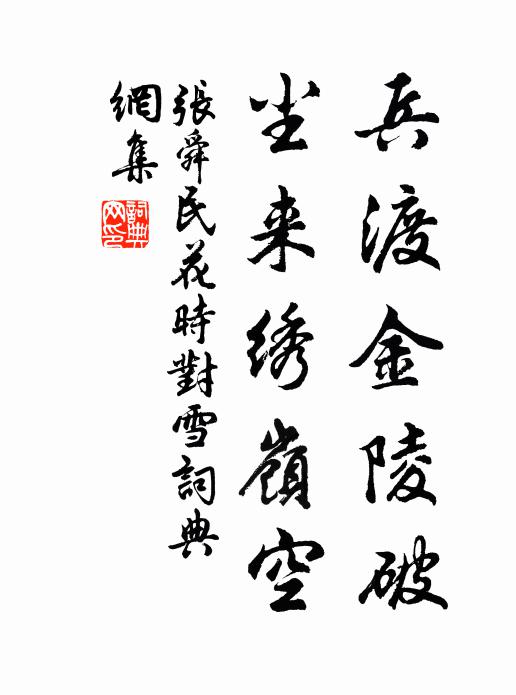 兵渡金陵破
尘来绣嶺空
張舜民花時對雪詞典
網集
詞典網印